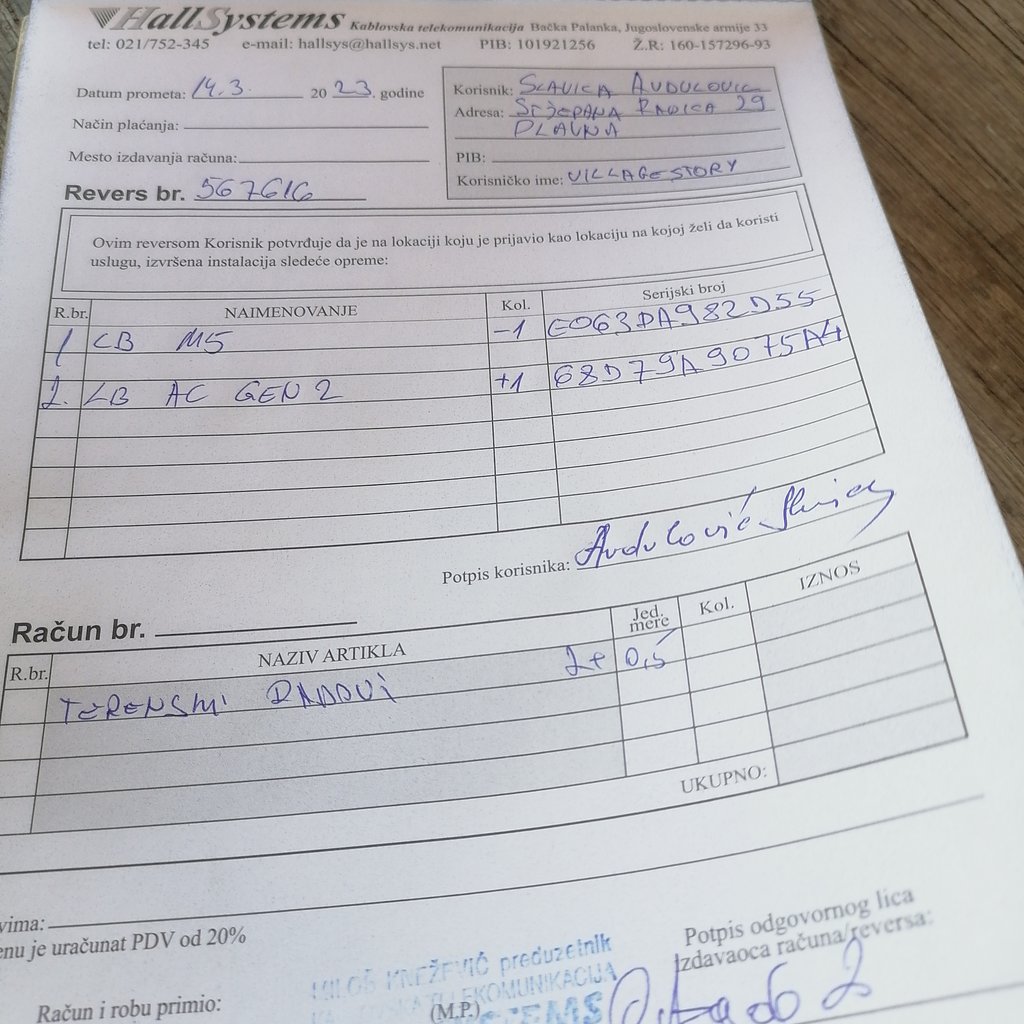 HallSystems Kablovska telekomunikacija Bačka Palanka, Jugoslovenske armije 33
tel: 021/752-345 e-mail: hallsys@hallsys.net PIB: 101921256 Ž.R: 160-157296-93
Datum prometa: 14.3. 20 23. godine
Način plaćanja:
Mesto izdavanja računa:
Revers br. 567616
Korisnik: SLAVICA AVDULOVIC
Adresa: STJEPANA RADICA 29
PLAVNA
PIB:
Korisničko ime: VILLAGESTORY
Ovim reversom Korisnik potvrđuje da je na lokaciji koju je prijavio kao lokaciju na kojoj želi da koristi
uslugu, izvršena instalacija sledeće opreme:
R.br. NAIMENOVANJE Kol. Serijski broj
1 LB M5 -1 E063DA982D55
2. LB AC GEN 2 +1 68D79A9075A4
Potpis korisnika: Avdulović Slavica
Račun br.
R.br. NAZIV ARTIKLA Jed. mere Kol. IZNOS
TERENSKI RADOVI 2+ 0,5
UKUPNO:
vima:
enu je uračunat PDV od 20%
Potpis odgovornog lica
Izdavaoca računa/reversa:
Račun i robu primio:
MILOŠ KNEŽEVIĆ preduzetnik
TELEKOMUNIKACIJA
(M.P.)